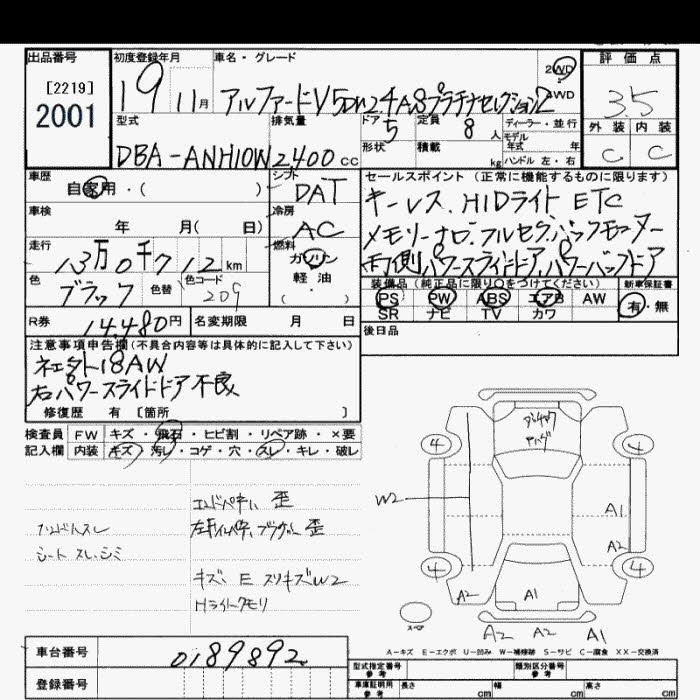 出品番号
[2219]
2001
初度登録年月
19 11月
車名・グレード
アルファードV 5DW 24 AS プラチナセレクション2
2WD
4WD
評価点
3.5
外装 内装
C C
型式
DBA-ANH10W
排気量
2400 cc
ドア
5
形状
定員
8 人
積載
kg
ディーラー・並行
モデル年式 年
ハンドル 左・右
車歴
自家用・( )
車検
年 月( 日)
走行
13万0千712 km
色
ブラック
色替
色コード
209
シフト
DAT
冷房
AC
燃料
ガソリン
軽油
( ・ )
セールスポイント(正常に機能するものに限ります)
キーレス、HIDライト ETC
メモリーナビ、フルセグ、バックモニター
両側パワースライドドア、パワーバックドア
装備品(純正品に限り○をつけてください)
PS PW ABS エアB AW
SR ナビ TV カワ
新車保証書
有・無
R券
14,480円
名変期限 月 日
後日品
注意事項申告欄(不具合内容等は具体的に記入して下さい)
社外18AW
右パワースライドドア不良
修復歴 有 [箇所 ]
検査員記入欄
FW キズ・飛石・ヒビ割・リペア跡・×要
内装 キズ・汚レ・コゲ・穴・スレ・キレ・破レ
エンドパネル 歪
歪
シート スレ、シミ
キズ、E スリキズW2
Hライトクモリ
W2
4
4
4
4
A1
A2
A2
A1
A2 A2 A1
スペア
A-キズ E-エクボ U-凹み W-補修跡 S-サビ C-腐食 XX-交換済
車台番号
0189892
登録番号
型式指定番号
参考
類別区分番号
参考
車庫証明用
参考
長さ cm
幅 cm
高さ cm